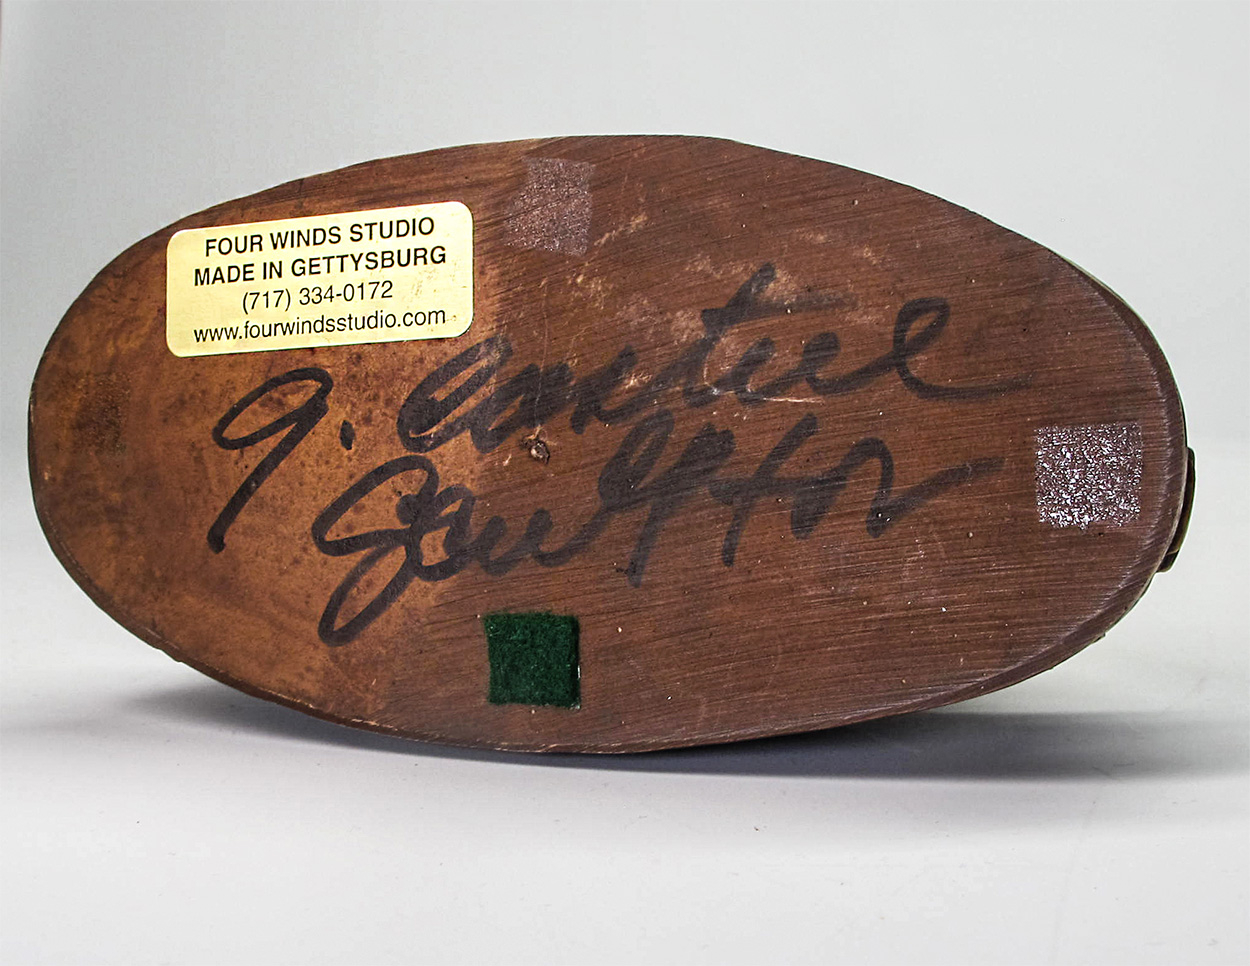 FOUR WINDS STUDIO
MADE IN GETTYSBURG
(717) 334-0172
www.fourwindsstudio.com
G. Casteel
Sculptor